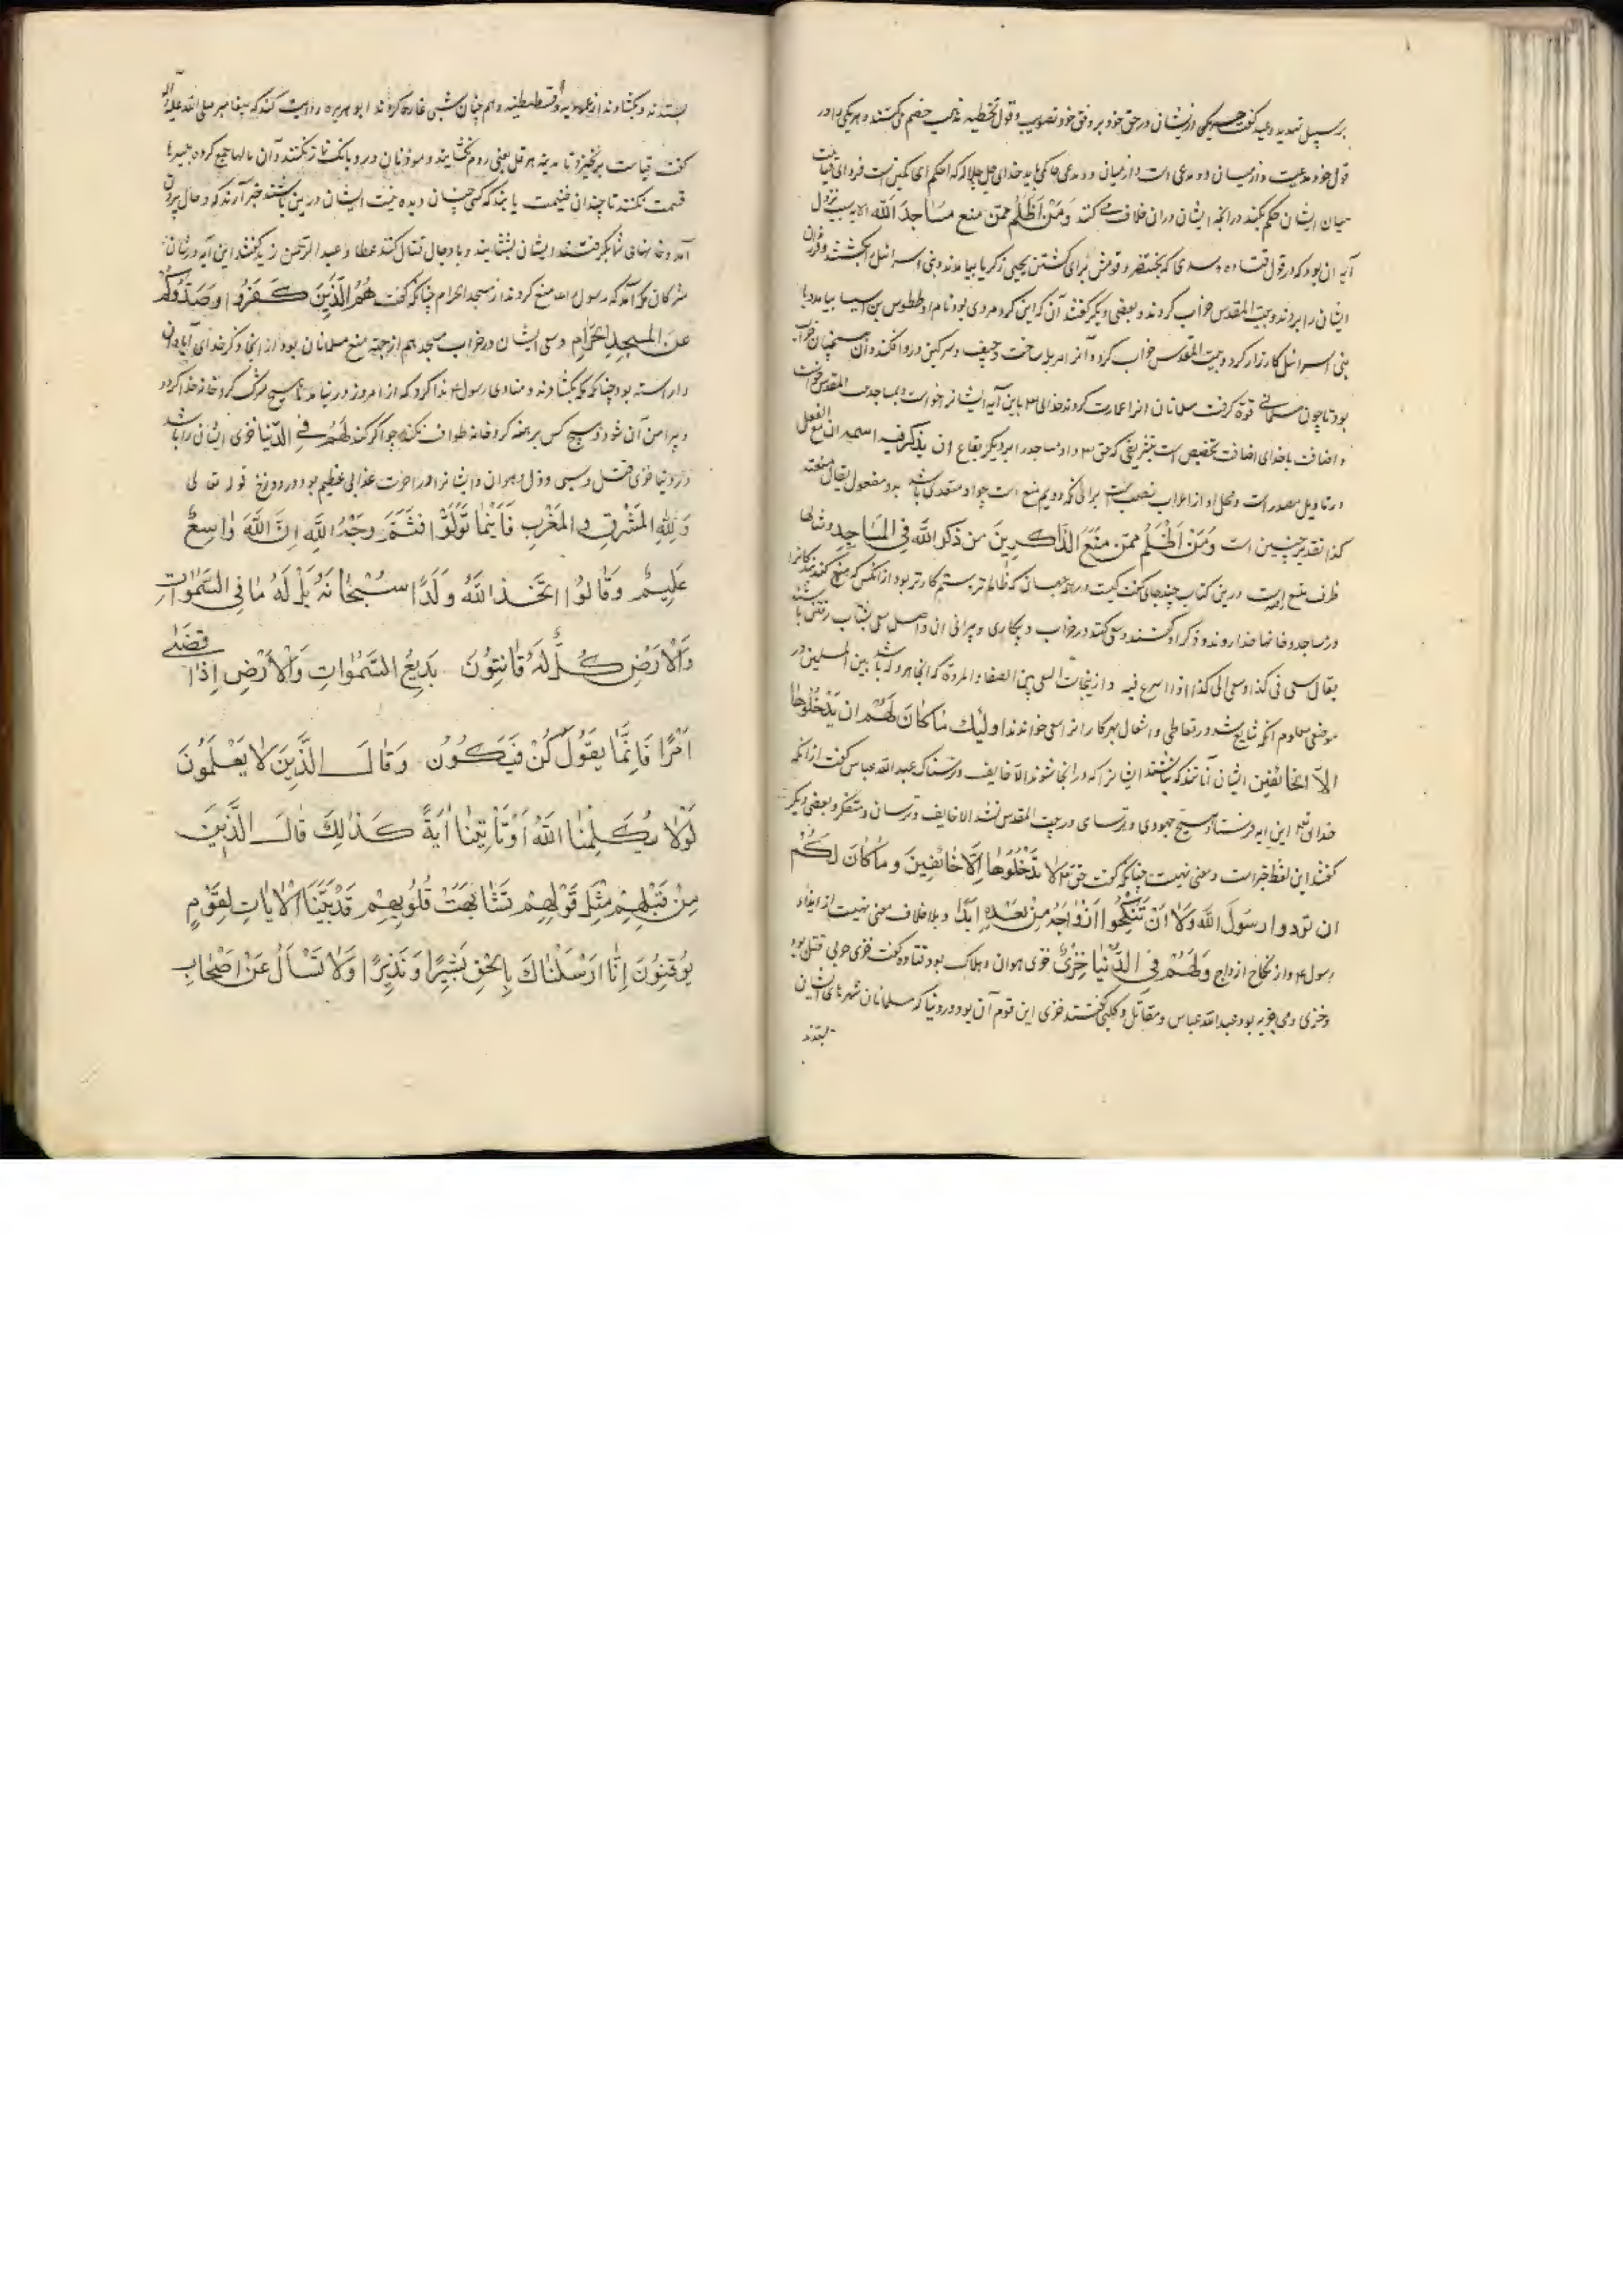 بر سبیل تهدید و وعید گفت هر یکی از ایشان در حق خود بر وفق خود تصویب و قول تخطیه مذهب خصم می‌کنند هر یکی را در
قول خود مدعیست و از میان دو مدعی است و از میان دو مدعی حاکمی باید خدای جل جلاله که احکم الحاکمین است فردای قیامت
میان ایشان حکم بکند در آنچه ایشان در آن خلاف می کنند وَمَنْ اَظْلَمُ ممّن منع مَسَاجِدَ اللّٰه الایه سبب نزول
آیه آن بود که در قول قتاده و سدی که بختنصر و قومش برای کشتن یحیی زکریا بیامدند و بنی اسرائیل را بکشتند و
ایشان را بردند و بیت المقدس خراب کردند و بعضی دیگر گفتند آن که این کرد مردی بود نام او ططوس بن اسیسا بیامد و با
بنی اسرائیل کارزار کرد و بیت المقدس خراب کرد و آنرا مزبله ساخت و جیفه و سرگین در و افکندند و آن همچنان خراب
بود تا چون مسلمانی قوة گرفت مسلمانان انرا عمارت کردند خدای تع باین آیه ایشانرا خواست و بمساجد بیت المقدس خواست
و اضافت با خدای اضافت تخصیص است
در تاویل مصدر است و محل او از اعراب نصب است برای آنکه دویم منع است چو او متعدی باشد بدو مفعول یقال منعته
کذا تقدیر چنین است وَمَنْ اَظْلَمُ ممّن مَنَعَ الذّاکِرِینَ مِن ذکرِ اللّٰه فِی المَسَاجِدِ
ظرف منع است و درین کتاب چند جای گفت کیست در همه جهان که ظالم تر و ستم کارتر بود از آنکس که منع کند
در مساجد و خانها خدا روند و ذکر او کنند و سعی کند در خراب و بیکاری و ویرانی آن و اصل سعی بشتاب رفتن باشد
یقال سعی فی کذا و سعی الی کذا اذا اسرع فیه و از اینجاست السعی بین الصفا و المروة که آنجا هروله باشد بین المیلین در
موضعی معلوم آنکه شایع شد در تعاطی و اشتغال بهر کار را نرا سعی خواندند اولٰئِكَ مَا كَانَ لَهُمْ ان یَدْخُلُوهَا
الاّ الخائفین ایشان آنانند که نباشند ایشانرا که در آنجا شوند الا خایف و ترسناک عبد الله عباس گفت از آنکه
خدای تع این آیه فرستاد هیچ جهودی و ترسای در بیت المقدس نشد الا خایف و ترسان و متنکر و بعضی دیگر
گفتند این لفظ خبر است و معنی نهیست چنانکه گفت حق تع لا تَدْخُلُوهَا اِلّا خَائِفِینَ و مَا كَانَ لَكُمْ
ان تؤذوا رسُولَ اللّٰه وَلَا اَنْ تَنْکِحُوا اَزْوَاجَهُ مِنْ بَعْدِهِ اَبَدًا و بلا خلاف معنی نهیست از ایذاء
رسول ۴ و از نکاح ازواج وَلَهُمْ فِی الدُّنْیَا خِزْیٌ خزی هوان و هلاک بود قتاده گفت خزی حربی قتل بود
و خزی ذمی جزیه بود عبد الله عباس و مقاتل و کلبی گفتند خزی این قوم آن بود در دنیا که مسلمانان شهرهای ایشان
بستدند
بستدند و بگشادند از عموریه و قسطنطنیه و هم چنان شبی غارة کردند ابو هریره روایت کند که پیغامبر صلی الله علیه و آله
گفت قیامت برنخیزد تا مدینه هرقل یعنی روم نگشایند و موذنان در و بانگ نماز نکنند و آن مالها جمع کرده بسپرها
قسمت نکنند تا چندان غنیمت یابند که کس چنان دیده نیست ایشان درین باشند خبر آرند که دجال بیرون
آمد و خانهای شما بگرفت ایشان بشتابند و با دجال قتال کنند عطا و عبد الرحمن زید گفتند این آیه در شان
مشرکان مکه آمد که رسول را منع کردند از مسجد الحرام چنانکه گفت هُمُ الّذِینَ کَفَرُوا وَصَدُّوکُمْ
عَنِ المَسْجِدِ الحَرَامِ و سعی ایشان در خراب مسجد هم از جهة منع مسلمانان بود از آنجا و ذکر خدای آبادان
داراسته بود چنانکه مکه بگشادند و منادی رسول ۴ ندا کرد که از امروز در نیامد تا هیچ مشرک گرد خانه خدا کردد
و پیرامن آن شود و هیچ کس برهنه گرد خانه طواف نکند چو اگر کند لَهُمْ فِی الدُّنْیَا خزی ایشان را باشد
در دنیا خزی قتل و سبی و ذل و هوان و ایشانرا در اخرت عذابی عظیم بود در دوزخ قوله تعالی
وَلِلّٰهِ المَشْرِقُ وَ المَغْرِبِ فَاَیْنَمَا تُوَلُّوا فَثَمَّ وَجْهُ اللّٰهِ اِنَّ اللّٰهَ وَاسِعٌ
عَلِیمٌ وَقَالُوا اتَّخَذَ اللّٰهُ وَلَدًا سُبْحَانَهُ بَلْ لَهُ مَا فِی السَّمٰوَاتِ
وَالْاَرْضِ كُلٌّ لَهُ قَانِتُونَ بَدِیعُ السَّمٰوَاتِ وَالْاَرْضِ اِذَا قَضٰی
اَمْرًا فَاِنَّمَا یَقُولُ كُنْ فَیَكُونُ وَقَالَ الَّذِینَ لَا یَعْلَمُونَ
لَوْلَا یُكَلِّمُنَا اللّٰهُ اَوْ تَاْتِینَا اٰیَةٌ كَذٰلِكَ قَالَ الَّذِینَ
مِنْ قَبْلِهِمْ مِثْلَ قَوْلِهِمْ تَشَابَهَتْ قُلُوبُهُمْ قَدْ بَیَّنَّا الْاٰیَاتِ لِقَوْمٍ
یُوقِنُونَ اِنَّا اَرْسَلْنَاكَ بِالْحَقِّ بَشِیرًا وَ نَذِیرًا وَلَا تَسْأَلُ عَنْ اَصْحَابِ